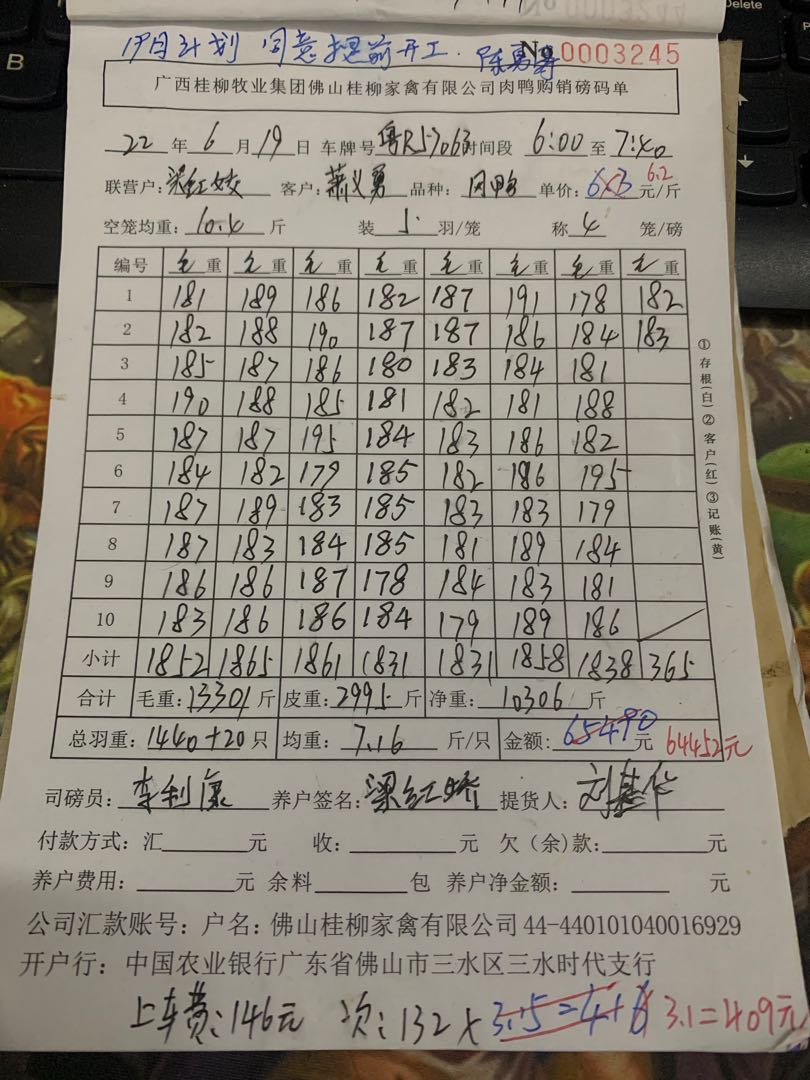 19日计划 同意提前开工. 陈勇
No 0003245
广西桂柳牧业集团佛山桂柳家禽有限公司肉鸭购销磅码单
22 年 6 月 19 日 车牌号 粤R57063 时间段 6:00 至 7:40
联营户: 梁红姣 客户: 萧义勇 品种: 肉鸭 单价: 6.3 6.2 元/斤
空笼均重: 10.4 斤 装 5 羽/笼 称 4 笼/磅
编号 毛重 毛重 毛重 毛重 毛重 毛重 毛重 毛重
1 181 189 186 182 187 191 178 182
2 182 188 190 187 187 186 184 183
3 185 187 186 180 183 184 181
4 190 188 185 181 182 181 188
5 187 187 195 184 183 186 182
6 184 182 179 185 182 186 195
7 187 189 183 185 183 183 179
8 187 183 184 185 181 189 184
9 186 186 187 178 184 183 181
10 183 186 186 184 179 189 186
小计 1852 1865 1861 1831 1831 1858 1838 365
合计 毛重: 13301 斤 皮重: 2995 斤 净重: 10306 斤
总羽重: 1440+20 只 均重: 7.16 斤/只 金额: 65490 元 64452元
司磅员: 李利康 养户签名: 梁红娇 提货人: 刘基华
付款方式: 汇 元 收: 元 欠(余)款: 元
养户费用: 元 余料 包 养户净金额: 元
公司汇款账号: 户名: 佛山桂柳家禽有限公司 44-440101040016929
开户行: 中国农业银行广东省佛山市三水区三水时代支行
上车费: 146元 次: 132 x 3.15=416 3.1=409元
①存根(白)②客户(红)③记账(黄)